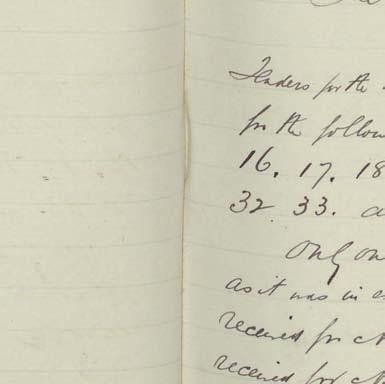 Tenders for the
for the follow
16. 17. 18
32. 33. a
Only on
as it was in e
received for
received for